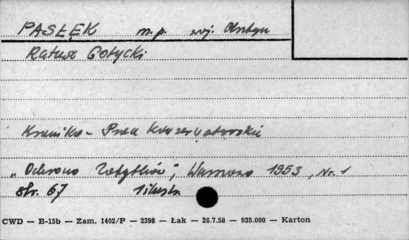 PASŁĘK m.p. woj. Olsztyn
Ratusz Gotycki
Kronika - Prace Konserwatorskie
„Ochrona Zabytków", Warszawa 1953, Nr. 1
str. 67 1 ilustr.
CWD — B-15b — Zam. 1402/P — 2398 — Łak — 26.7.58 — 935.000 — Karton